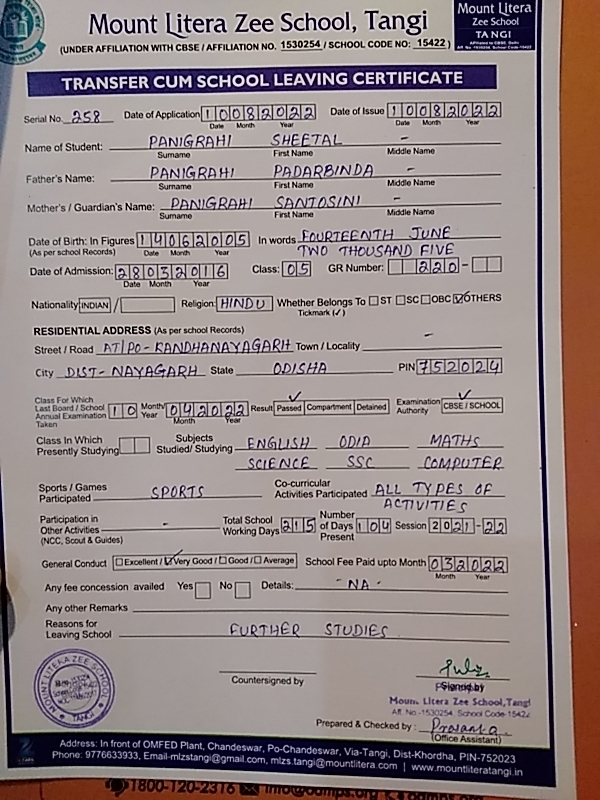 Mount Litera Zee School, Tangi
(UNDER AFFILIATION WITH CBSE / AFFILIATION NO. 1530254 / SCHOOL CODE NO: 15422)
Mount Litera
Zee School
TANGI
TRANSFER CUM SCHOOL LEAVING CERTIFICATE
Serial No. 258 Date of Application 10082022 Date of Issue 10082022
Date Month Year Date Month Year
Name of Student: PANIGRAHI SHEETAL -
Surname First Name Middle Name
Father's Name: PANIGRAHI PADARBINDA -
Surname First Name Middle Name
Mother's / Guardian's Name: PANIGRAHI SANTOSINI -
Surname First Name Middle Name
Date of Birth: In Figures 14062005 In words FOURTEENTH JUNE
(As per school Records) Date Month Year TWO THOUSAND FIVE
Date of Admission: 28032016 Class: 05 GR Number: 220-
Date Month Year
Nationality INDIAN / Religion: HINDU Whether Belongs To ST SC OBC ✓ OTHERS
Tickmark (✓)
RESIDENTIAL ADDRESS (As per school Records)
Street / Road AT/PO-KANDHANAYAGARH Town / Locality -
City DIST-NAYAGARH State ODISHA PIN 752024
Class For Which
Last Board / School
Annual Examination
Taken 10 Month/Year 042022 Result ✓ Passed Compartment Detained Examination Authority ✓ CBSE / SCHOOL
Month Year
Class In Which
Presently Studying Subjects Studied/ Studying ENGLISH ODIA MATHS
SCIENCE SSC COMPUTER
Sports / Games
Participated SPORTS Co-curricular
Activities Participated ALL TYPES OF
ACTIVITIES
Participation in
Other Activities -
(NCC, Scout & Guides) Total School Working Days 215 Number of Days Present 104 Session 2021-22
General Conduct Excellent / ✓ Very Good / Good / Average School Fee Paid upto Month 032022
Month Year
Any fee concession availed Yes No Details: -NA-
Any other Remarks
Reasons for
Leaving School FURTHER STUDIES
MOUNT LITERA ZEE SCHOOL
TANGI
Countersigned by
Signed by
Mount Litera Zee School, Tangi
Aff. No.-1530254, School Code-15422
Prepared & Checked by :
(Office Assistant)
Address: In front of OMFED Plant, Chandeswar, Po-Chandeswar, Via-Tangi, Dist-Khordha, PIN-752023
Phone: 9776633933, Email-mlzstangi@gmail.com, mlzs.tangi@mountlitera.com | www.mountliteratangi.in
1800-120-2316